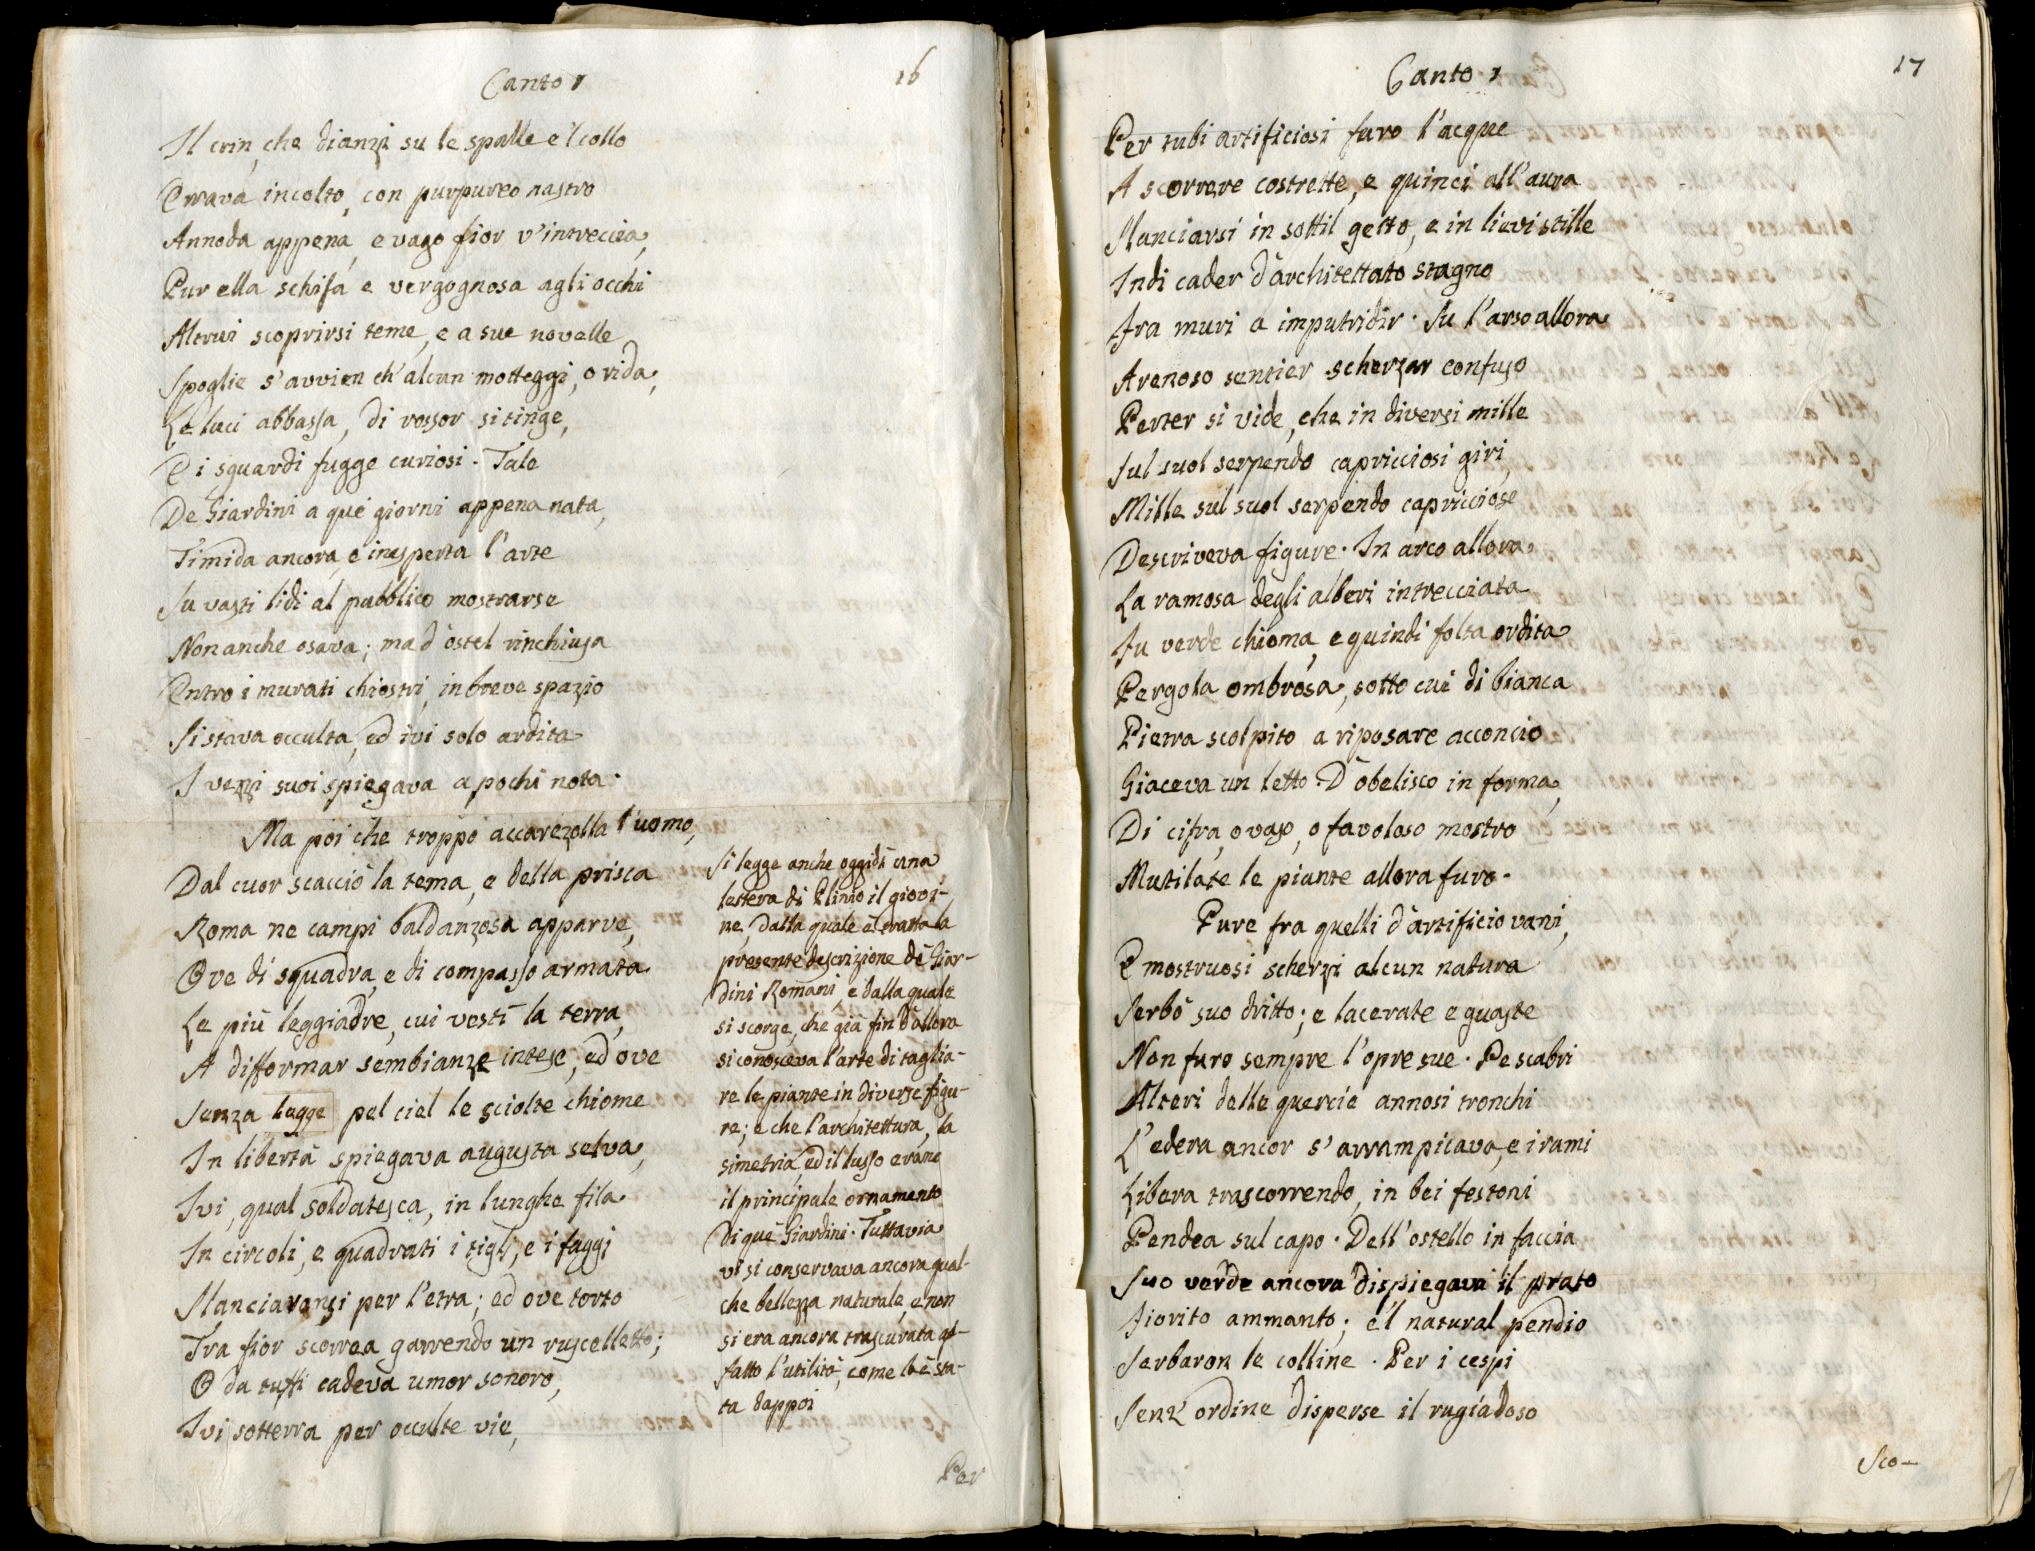 Canto 1
16
Il crin, che dianzi su le spalle e 'l collo
Errava incolto, con purpureo nastro
Annoda appena, e vago fior v'intreccia,
Pur ella schifa e vergognosa agli occhi
Altrui scoprirsi teme, e a sue novelle
Spoglie s'avvien ch'alcun motteggi, o rida,
Le luci abbassa, di rossor si tinge,
E i sguardi fugge curiosi. Tale
De Giardini a què giorni appena nata,
Timida ancora, e inesperta l'arte
Su vasti lidi al pubblico mostrarse
Non anche osava; ma d'ostel rinchiusa
Entro i murati chiostri, in breve spazio
Si stava occulta, ed ivi solo ardita
I vezzi suoi spiegava a pochi nota.
Ma poi che troppo accarezolla l'uomo,
Dal cuor scacciò la tema, e della prisca
Roma ne campi baldanzosa apparve,
Ove di squadra, e di compasso armata
Le più leggiadre, cui vestì la terra,
A difformar sembianze intese; ed ove
Senza legge pel ciel le sciolte chiome
In libertà spiegava augusta selva,
Ivi, qual soldatesca, in lunghe fila
In circoli, e quadrati i tigli, e i faggi
Slanciaronsi per l'etra; ed ove torto
Tra fior scorrea garrendo un ruscelletto;
O da tuffi cadeva umor sonoro,
Ivi sotterra per occulte vie,
Si legge anche oggidì una
lettera di Plinio il giovi-
ne, dalla quale è tratta la
presente descrizione dè Giar-
dini Romani, e dalla quale
si scorge, che già fin d'allora
si conosceva l'arte di taglia-
re le piante in diverse figu-
re; e che l'architettura, la
simetria, ed il lusso erano
il principale ornamento
di què Giardini. Tuttavia
vi si conservava ancora qual-
che bellezza naturale, e non
si era ancora trascurata af-
fatto l'utilità, come lo è sta-
ta dappoi
Per
Canto 1
17
Per tubi artificiosi furo l'acque
A scorrere costrette, e quinci all'aura
Slanciarsi in sottil getto, e in lievi stille
Indi cader d'architettato stagno
Fra muri a imputridir. Su l'arso allora
Arenoso sentier scherzar confuso
Perter si vide, che in diversi mille
Sul suol serpendo capricciosi giri,
Mille sul suol serpendo capricciose
Descriveva figure. In arco allora
La ramosa degli alberi intrecciata
Fu verde chioma, e quindi folta ordita
Pergola ombrosa, sotto cui di bianca
Pietra scolpito a riposare acconcio
Giaceva un letto. D'obelisco in forma,
Di cifra, o vaso, o favoloso mostro
Mutilate le piante allora furo.
Pure fra quelli d'artificio vani,
E mostruosi scherzi alcun natura
Serbò suo dritto; e lacerate e guaste
Non furo sempre l'opre sue. Pe scabri
Alteri delle quercie annosi tronchi
L'edera ancor s'arrampicava, e i rami
Libera trascorrendo, in bei festoni
Pendea sul capo. Dell'ostello in faccia
Suo verde ancora dispiegava il prato
Fiorito ammanto; e'l natural pendio
Serbaron le colline. Per i cespi
Senz'ordine disperse il rugiadoso
Sco-